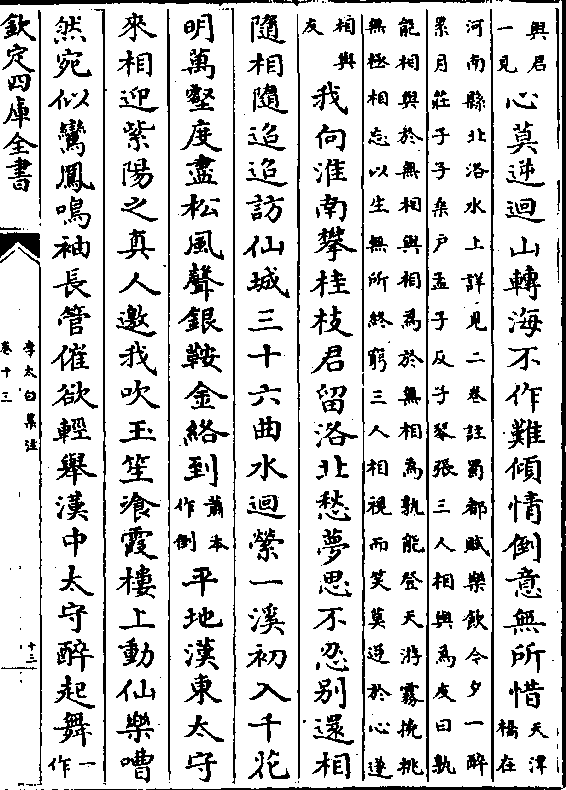 與君一見心莫逆迴山轉海不作難傾情倒意無所惜天津橋在
河南縣北洛水上詳見二卷註蜀都賦樂飲今夕一醉
累月莊子子桑戶孟子反子琴張三人相與為友曰孰
能相與於無相與相為於無相為孰能登天游霧撓挑
無極相忘以生無所終窮三人相視而笑莫逆於心遂
相與友我向淮南攀桂枝君留洛北愁夢思不忍別還相
隨相隨迢迢訪仙城三十六曲水迴縈一溪初入千花
明萬壑度盡松風聲銀鞍金絡到蕭本作倒平地漢東太守
來相迎紫陽之真人邀我吹玉笙飡霞樓上動仙樂嘈
然宛似鸞鳳鳴袖長管催欲輕舉漢中太守醉起舞一作
欽定四庫全書
李太白集注
卷十三
十三